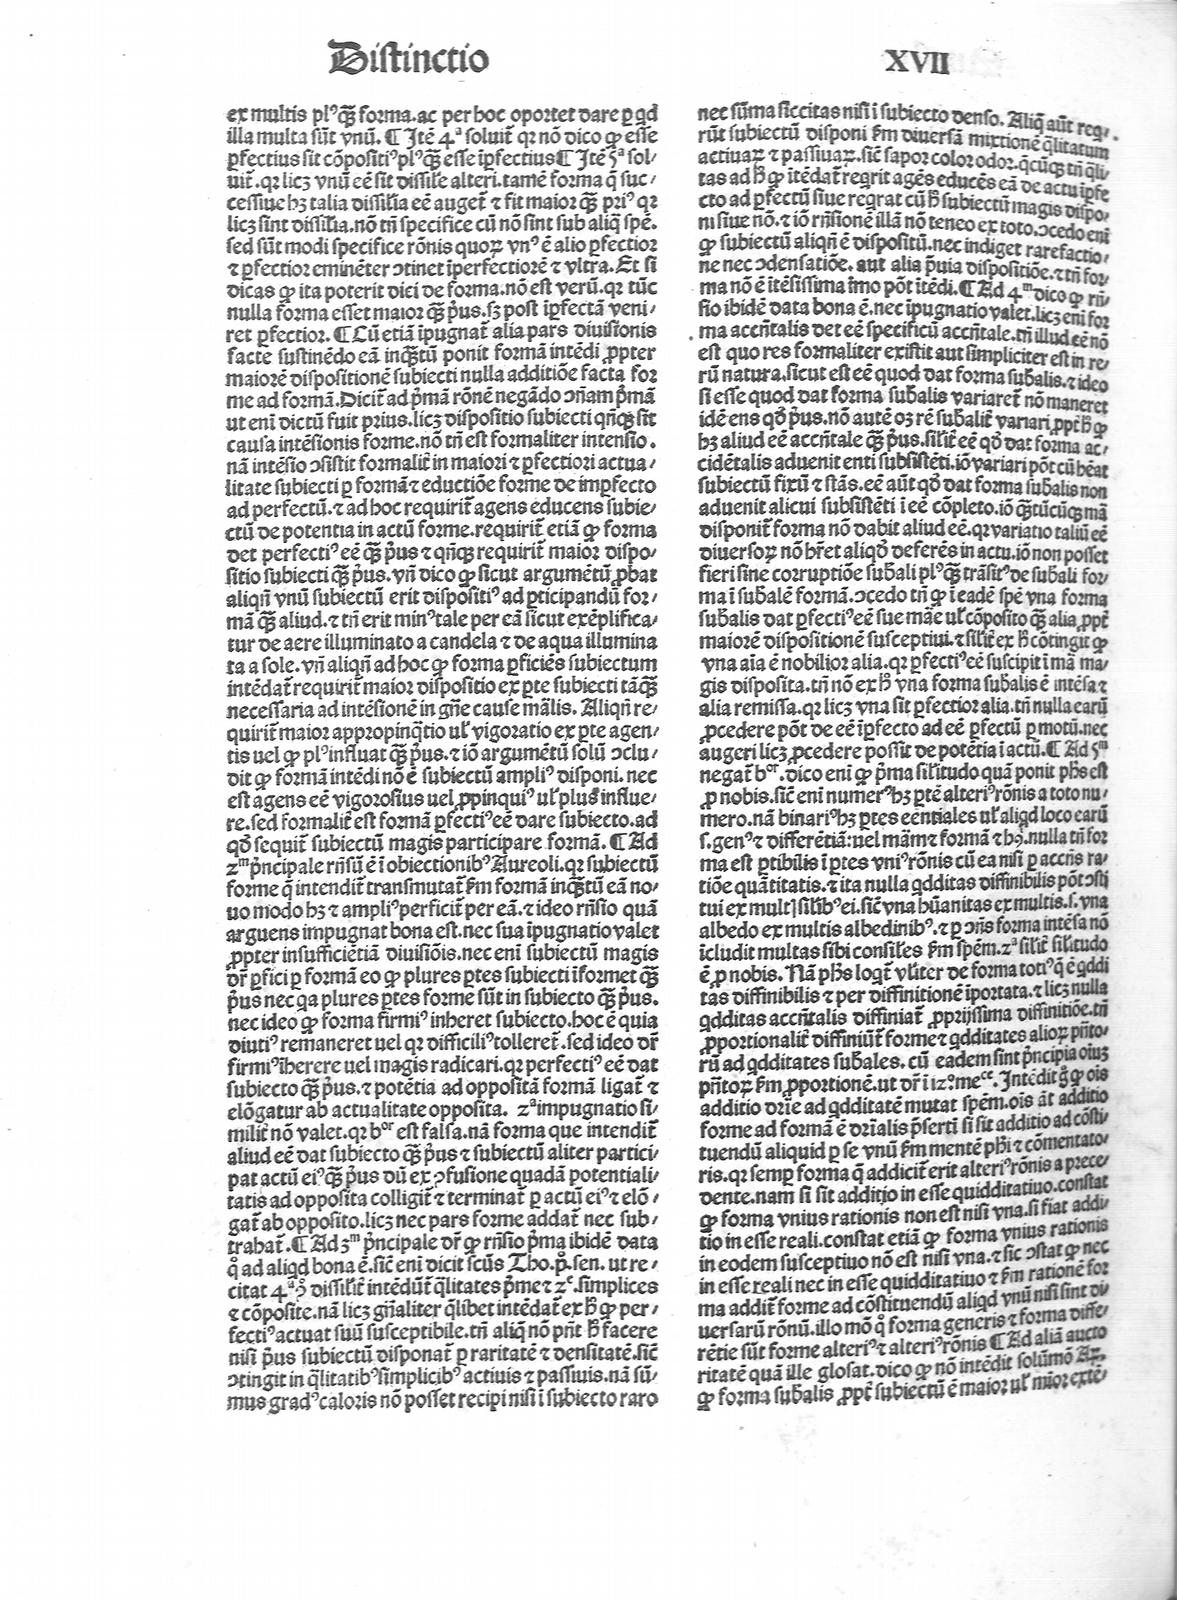 Distinctio
XVII
ex multis plꝰ q̃ȝ forma. ac per hoc oportet dare ꝑ qd
illa multa sūt vnū. ¶ Itē 4ª soluit̄ qꝛ nō dico ꝙ esse
ꝑfectius sit cōpositiꝰ plꝰ q̃ȝ esse īpfectius ¶ Itē 5ª sol⸗
uit̄. qꝛ licȝ vnū eē sit dissile alteri. tamē forma q̄ suc⸗
cessiue hȝ talia dissilia eē auget̄ ⁊ fit maior q̃ȝ priꝰ qꝛ
licȝ sint dissilia. nō tñ specifice cū nō sint sub aliq̄ spē.
sed sūt modi specifice rōnis quoꝝ vnꝰ ē alio ꝑfectior
⁊ ꝑfectior eminēter ↄtinet īperfectiorē ⁊ vltra. Et si
dicas ꝙ ita poterit dici de forma. nō est verū. qꝛ tūc
nulla forma esset maior q̃ȝ p̄us. sȝ post īpfectā veni⸗
ret ꝑfectior. ¶ Cū etiā īpugnat̄ alia pars diuisionis
facte sustinēdo eā inq̃ȝtū ponit formā intēdi ꝓpter
maiorē dispositionē subiecti nulla additiōe facta for
me ad formā. Dicit̄ ad p̄mā rōnē negādo ↄñam p̄mā
ut eni dictū fuit prius. licȝ dispositio subiecti qñqȝ sit
causa intēsionis forme. nō tñ est formaliter intensio.
nā intēsio ↄsistit formalit̄ in maiori ⁊ ꝑfectiori actua⸗
litate subiecti ꝑ formā ⁊ eductiōe forme de impfecto
ad perfectū. ⁊ ad hoc requirit̄ agens educens subie⸗
ctū de potentia in actū forme. requirit̄ etiā ꝙ forma
det perfectiꝰ eē q̃ȝ p̄us ⁊ qñqȝ requirit̄ maior dispo⸗
sitio subiecti q̃ȝ p̄us. vñ dico ꝙ sicut argumētū ꝓbat
aliqñ vnū subiectū erit dispositiꝰ ad ꝑticipandū for⸗
mā q̃ȝ aliud. ⁊ tñ erit minꝰ tale per eā sicut exēplifica⸗
tur de aere illuminato a candela ⁊ de aqua illumina
ta a sole. vñ aliqñ ad hoc ꝙ forma ꝑficiēs subiectum
intēdat̄ requirit̄ maior dispositio ex ꝑte subiecti tāq̃ȝ
necessaria ad intēsionē in gñe cause mālis. Aliqñ re⸗
quirit̄ maior appropinq̄tio uł vigoratio ex ꝑte agen⸗
tis uel ꝙ plꝰ influat q̃ȝ p̄us. ⁊ iō argumētū solū ↄclu⸗
dit ꝙ formā intēdi nō ē subiectū ampliꝰ disponi. nec
est agens eē vigorosius uel ꝓpinquiꝰ uł plus influe⸗
re. sed formalit̄ est formā ꝑfectiꝰ eē dare subiecto. ad
qđ sequit̄ subiectū magis participare formā. ¶ Ad
2ᵐ p̄ncipale rñsū ē ī obiectionibꝰ Aureoli. qꝛ subiectū
forme q̄ intendit̄ transmutat̄ ẜm formā inq̃ȝtū eā no⸗
uo modo hȝ ⁊ ampliꝰ perficit̄ per eā. ⁊ ideo rñsio quā
arguens impugnat bona est. nec sua īpugnatio valet
ꝓpter insufficiētiā diuisiōis. nec eni subiectū magis
dr̄ ꝑfici ꝑ formā eo ꝙ plures ꝑtes subiecti īformet q̃ȝ
p̄us nec qa plures ꝑtes forme sūt in subiecto q̃ȝ p̄us.
nec ideo ꝙ forma firmiꝰ inheret subiecto. hoc ē quia
diutiꝰ remaneret uel qꝛ difficiliꝰ tolleret̄. sed ideo dr̄
firmiꝰ īherere uel magis radicari. qꝛ perfectiꝰ eē dat
subiecto q̃ȝ p̄us. ⁊ potētia ad oppositā formā ligat̄ ⁊
elōgatur ab actualitate opposita. 2ª impugnatio si⸗
milit̄ nō valet. qꝛ bᵒʳ est falsa. nā forma que intendit̄
aliud eē dat subiecto q̃ȝ p̄us ⁊ subiectū aliter partici⸗
pat actū eiꝰ q̃ȝ p̄us dū ex ↄfusione quadā potentiali⸗
tatis ad opposita colligit̄ ⁊ terminat̄ ꝑ actū eiꝰ ⁊ elō⸗
gat̄ ab opposito. licȝ nec pars forme addat̄ nec sub⸗
trahat̄. ¶ Ad 3ᵐ p̄ncipale dr̄ ꝙ rñsio p̄ma ibidē data
q̊ ad aliqd bona ē. sic̄ eni dicit scūs Tho. p̊. sen. ut re⸗
citat 4ª. dissilit̄ intēdūt̄ q̄litates p̄me ⁊ 2ᵉ. simplices
⁊ cōposite. nā licȝ gñaliter q̄libet intēdat̄ ex ħ ꝙ per⸗
fectiꝰ actuat suū susceptibile. tñ aliq̄ nō pñt ħ facere
nisi p̄us subiectū disponat̄ ꝑ raritatē ⁊ densitatē. sic̄
ↄtingit in q̄litatibꝰ simplicibꝰ actiuis ⁊ passiuis. nā sū⸗
mus gradꝰ caloris nō posset recipi nisi ī subiecto raro
nec sūma siccitas nisi ī subiecto denso. Aliq̄ aūt reqͥ⸗
rūt subiectū disponi ẜm diuersā mixtionē q̄litatum
actiuaꝝ ⁊ passiuaꝝ. sic̄ sapor color odor. q̄cūqȝ tñ q̄li
tas ad ħ ꝙ itēdat̄ regrit agēs educēs eā de actu īpfe
cto ad ꝑfectū siue regrat cū ħ subiectū magis dispo⸗
ni siue nō. ⁊ iō rñsionē illā nō teneo ex toto. ↄcedo eni
ꝙ subiectū aliqñ ē dispositū. nec indiget rarefactio⸗
ne nec ↄdensatiōe. aut alia p̄uia dispositiōe. ⁊ tñ for⸗
ma nō ē itēsissima imo pōt itēdi. ¶ Ad 4ᵐ dico ꝙ rñ⸗
sio ibidē data bona ē. nec īpugnatio valet. licȝ eni for
ma accñtalis det eē specificū accñtale. tñ illud eē nō
est quo res formaliter existit aut simpliciter est in re⸗
rū natura. sicut est eē quod dat forma subalis. ⁊ ideo
si esse quod dat forma subalis variaret̄ nō maneret
idē ens qđ p̄us. nō autē oȝ rē subalit̄ variari ꝓpt̄ ħ ꝙ
hȝ aliud eē accñtale q̃ȝ p̄us. silit̄ eē qđ dat forma ac⸗
cidētalis aduenit enti subsistēti. iō variari pōt cū hēat
subiectū fixū ⁊ stās. eē aūt qđ dat forma subalis non
aduenit alicui subsistēti ī eē cōpleto. iō q̃ȝtūcūqȝ mā
disponit̄ forma nō dabit aliud eē. qꝛ variatio taliū eē
diuersoꝝ nō hr̄et aliqđ deferēs in actu. iō non posset
fieri sine corruptiōe subali plꝰ q̃ȝ trāsitꝰ de subali for⸗
ma ī subalē formā. ↄcedo tñ ꝙ ī eadē spē vna forma
subalis dat ꝑfectiꝰ eē sue māe uł cōposito q̃ȝ alia ꝓpt̄
maiorē dispositionē susceptiui. ⁊ silit̄ ex ħ cōtingit ꝙ
vna aīa ē nobilior alia. qꝛ ꝑfectiꝰ eē suscipit̄ ī mā ma⸗
gis disposita. tñ nō ex ħ vna forma subalis ē intēsa ⁊
alia remissa. qꝛ licȝ vna sit ꝑfectior alia. tñ nulla earū
ꝓcedere pōt de eē īpfecto ad eē ꝑfectū ꝑ motū. nec
augeri licȝ ꝓcedere possit de potētia ī actū. ¶ Ad 5ᵐ
negat̄ bᵒʳ. dico eni ꝙ p̄ma silitudo quā ponit pħs est
ꝓ nobis. sic̄ eni numerꝰ hȝ ꝑtē alteriꝰ rōnis a toto nu⸗
mero. nā binariꝰ hȝ ꝑtes eēntiales uł aliqd loco earū
s. genꝰ ⁊ differētiā: uel mām ⁊ formā ⁊ hꝰ. nulla tñ for
ma est ꝑtibilis ī ꝑtes vniꝰ rōnis cū ea nisi ꝑ accñs ra⸗
tiōe quātitatis. ⁊ ita nulla qdditas diffinibilis pōt ↄsti
tui ex mult silibꝰ ei. sic̄ vna hūanitas ex multis. s. vna
albedo ex multis albedinibꝰ. ⁊ ꝑ ↄñs forma intēsa nō
īcludit multas sibi consiles ẜm spēm. 2ª silit̄ silitudo
ē ꝓ nobis. Nā pħs loqt̄ vłiter de forma totiꝰ q̄ ē qddi
tas diffinibilis ⁊ per diffinitionē īportata. ⁊ licȝ nulla
qdditas accñtalis diffiniat̄ ꝓprijssima diffinitiōe. tñ
ꝓportionalit̄ diffiniūt̄ forme ⁊ qdditates alioꝝ pñto⸗
rū ad qdditates subales. cū eadem sint p̄ncipia oiuȝ
pñtoꝝ ẜm ꝓportionē. ut dr̄ ī 12º meᶜᵉ. Intēdit g̊ ꝙ ois
additio drīe ad qdditatē mutat spēm. ois āt additio
forme ad formā ē drīalis p̄serti si sit additio ad cōsti⸗
tuendū aliquid ꝑ se vnū ẜm mentē pħi ⁊ cōmentato⸗
ris. qꝛ semꝑ forma q̄ addicit̄ erit alteriꝰ rōnis a prece⸗
dente. nam si sit additio in esse quidditatiuo. constat
ꝙ forma vnius rationis non est nisi vna. si fiat addi⸗
tio in esse reali. constat etiā ꝙ forma vnius rationis
in eodem susceptiuo nō est nisi vna. ⁊ sic ↄstat ꝙ nec
in esse reali nec in esse quidditatiuo ⁊ ẜm rationē for
ma addit̄ forme ad cōstituendū aliqd vnū nisi sint di⸗
uersarū rōnū. illo mō q̊ forma generis ⁊ forma diffe⸗
rētie sūt forme alteriꝰ ⁊ alteriꝰ rōnis ¶ Ad aliā aucto
ritatē quā ille glosat. dico ꝙ nō intēdit solūmō Ar̄.
ꝙ forma subalis ꝓpt̄ subiectū ē maior uł mīor extē⸗